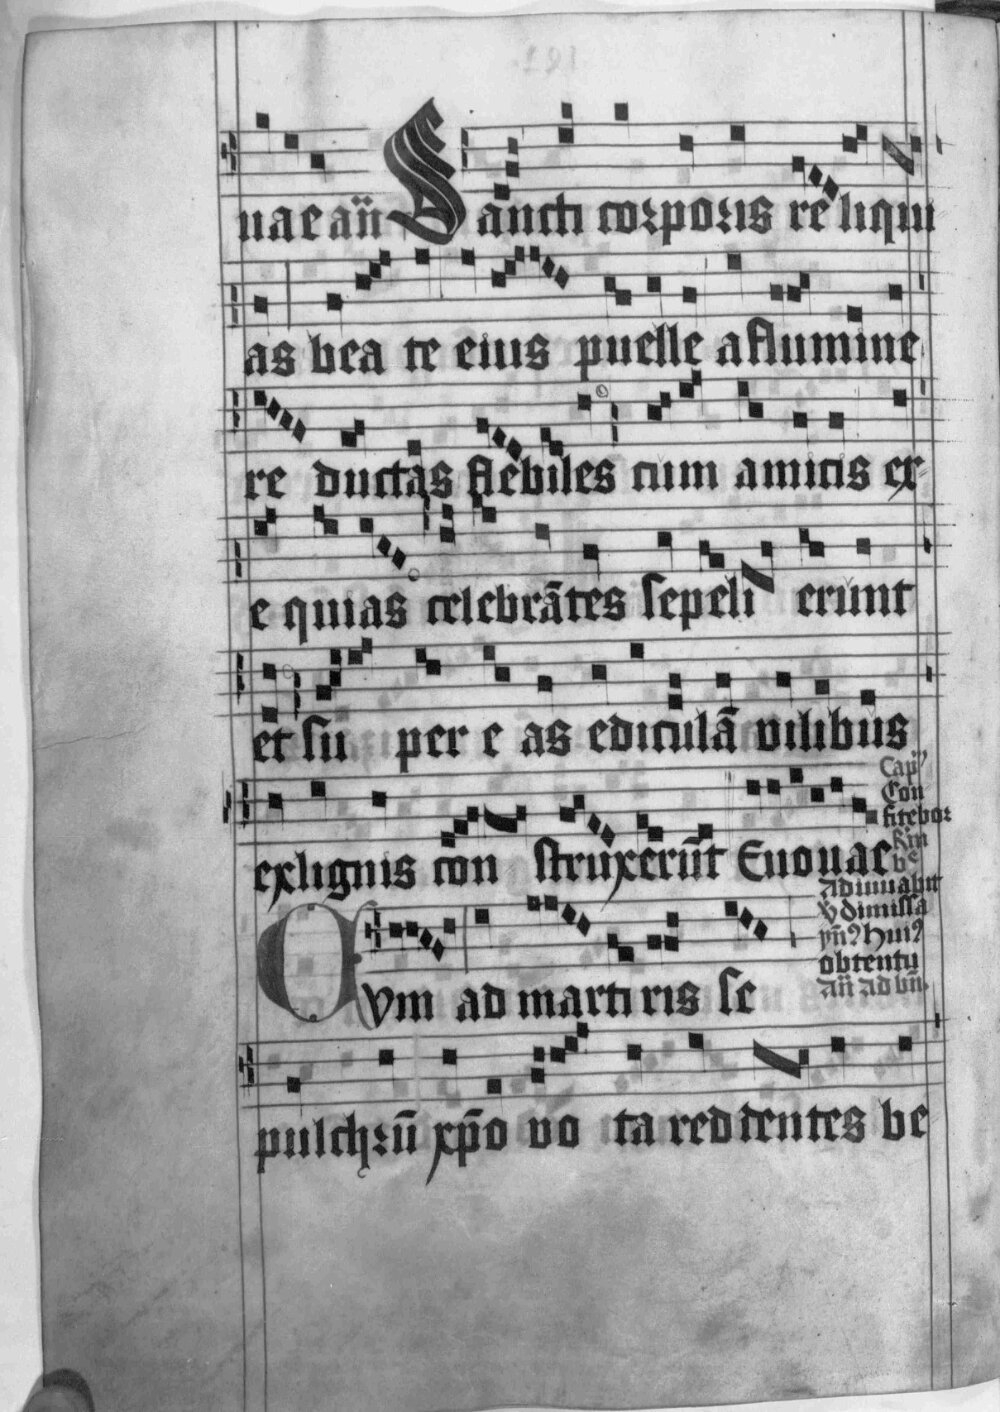 uae an̄ Sancti corporis re liqui
as bea te eius puelle a flumine
re ductas flebiles cum amicis ex-
e quias celebrātes sepeli erunt
et su per e as ediculā vilibus
ex lignis con struxerūt Euouae
Cap
Con
fitebor
adiuuabit
dimissa
hui9
obtentu
an̄ ad bn̄.
Cvm ad marti ris se
pulchrū xp̄o vo ta reddentes be